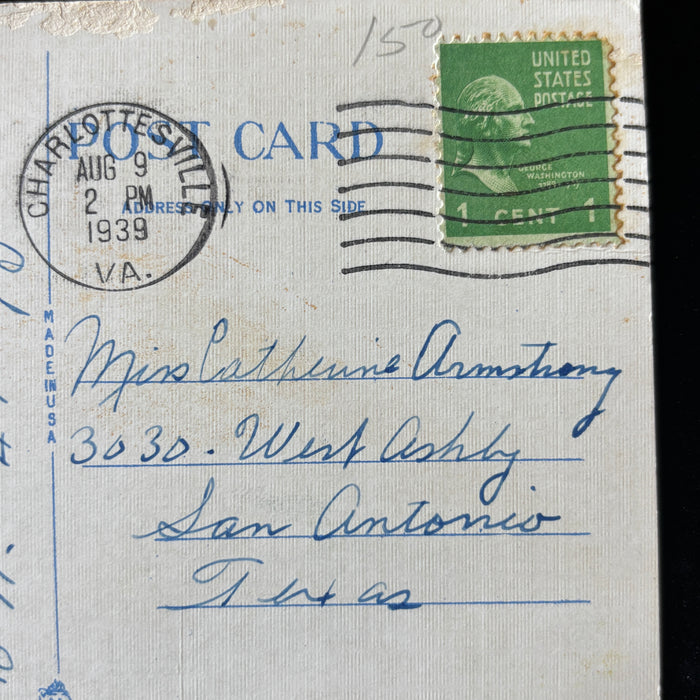 150
UNITED
STATES
POSTAGE
GEORGE
WASHINGTON
1 CENT 1
POST CARD
ADDRESS ONLY ON THIS SIDE
CHARLOTTESVILLE
AUG 9
2 PM
1939
VA.
MADE IN USA
Miss Catherine Armstrong
3030. West Ashby
San Antonio
Texas